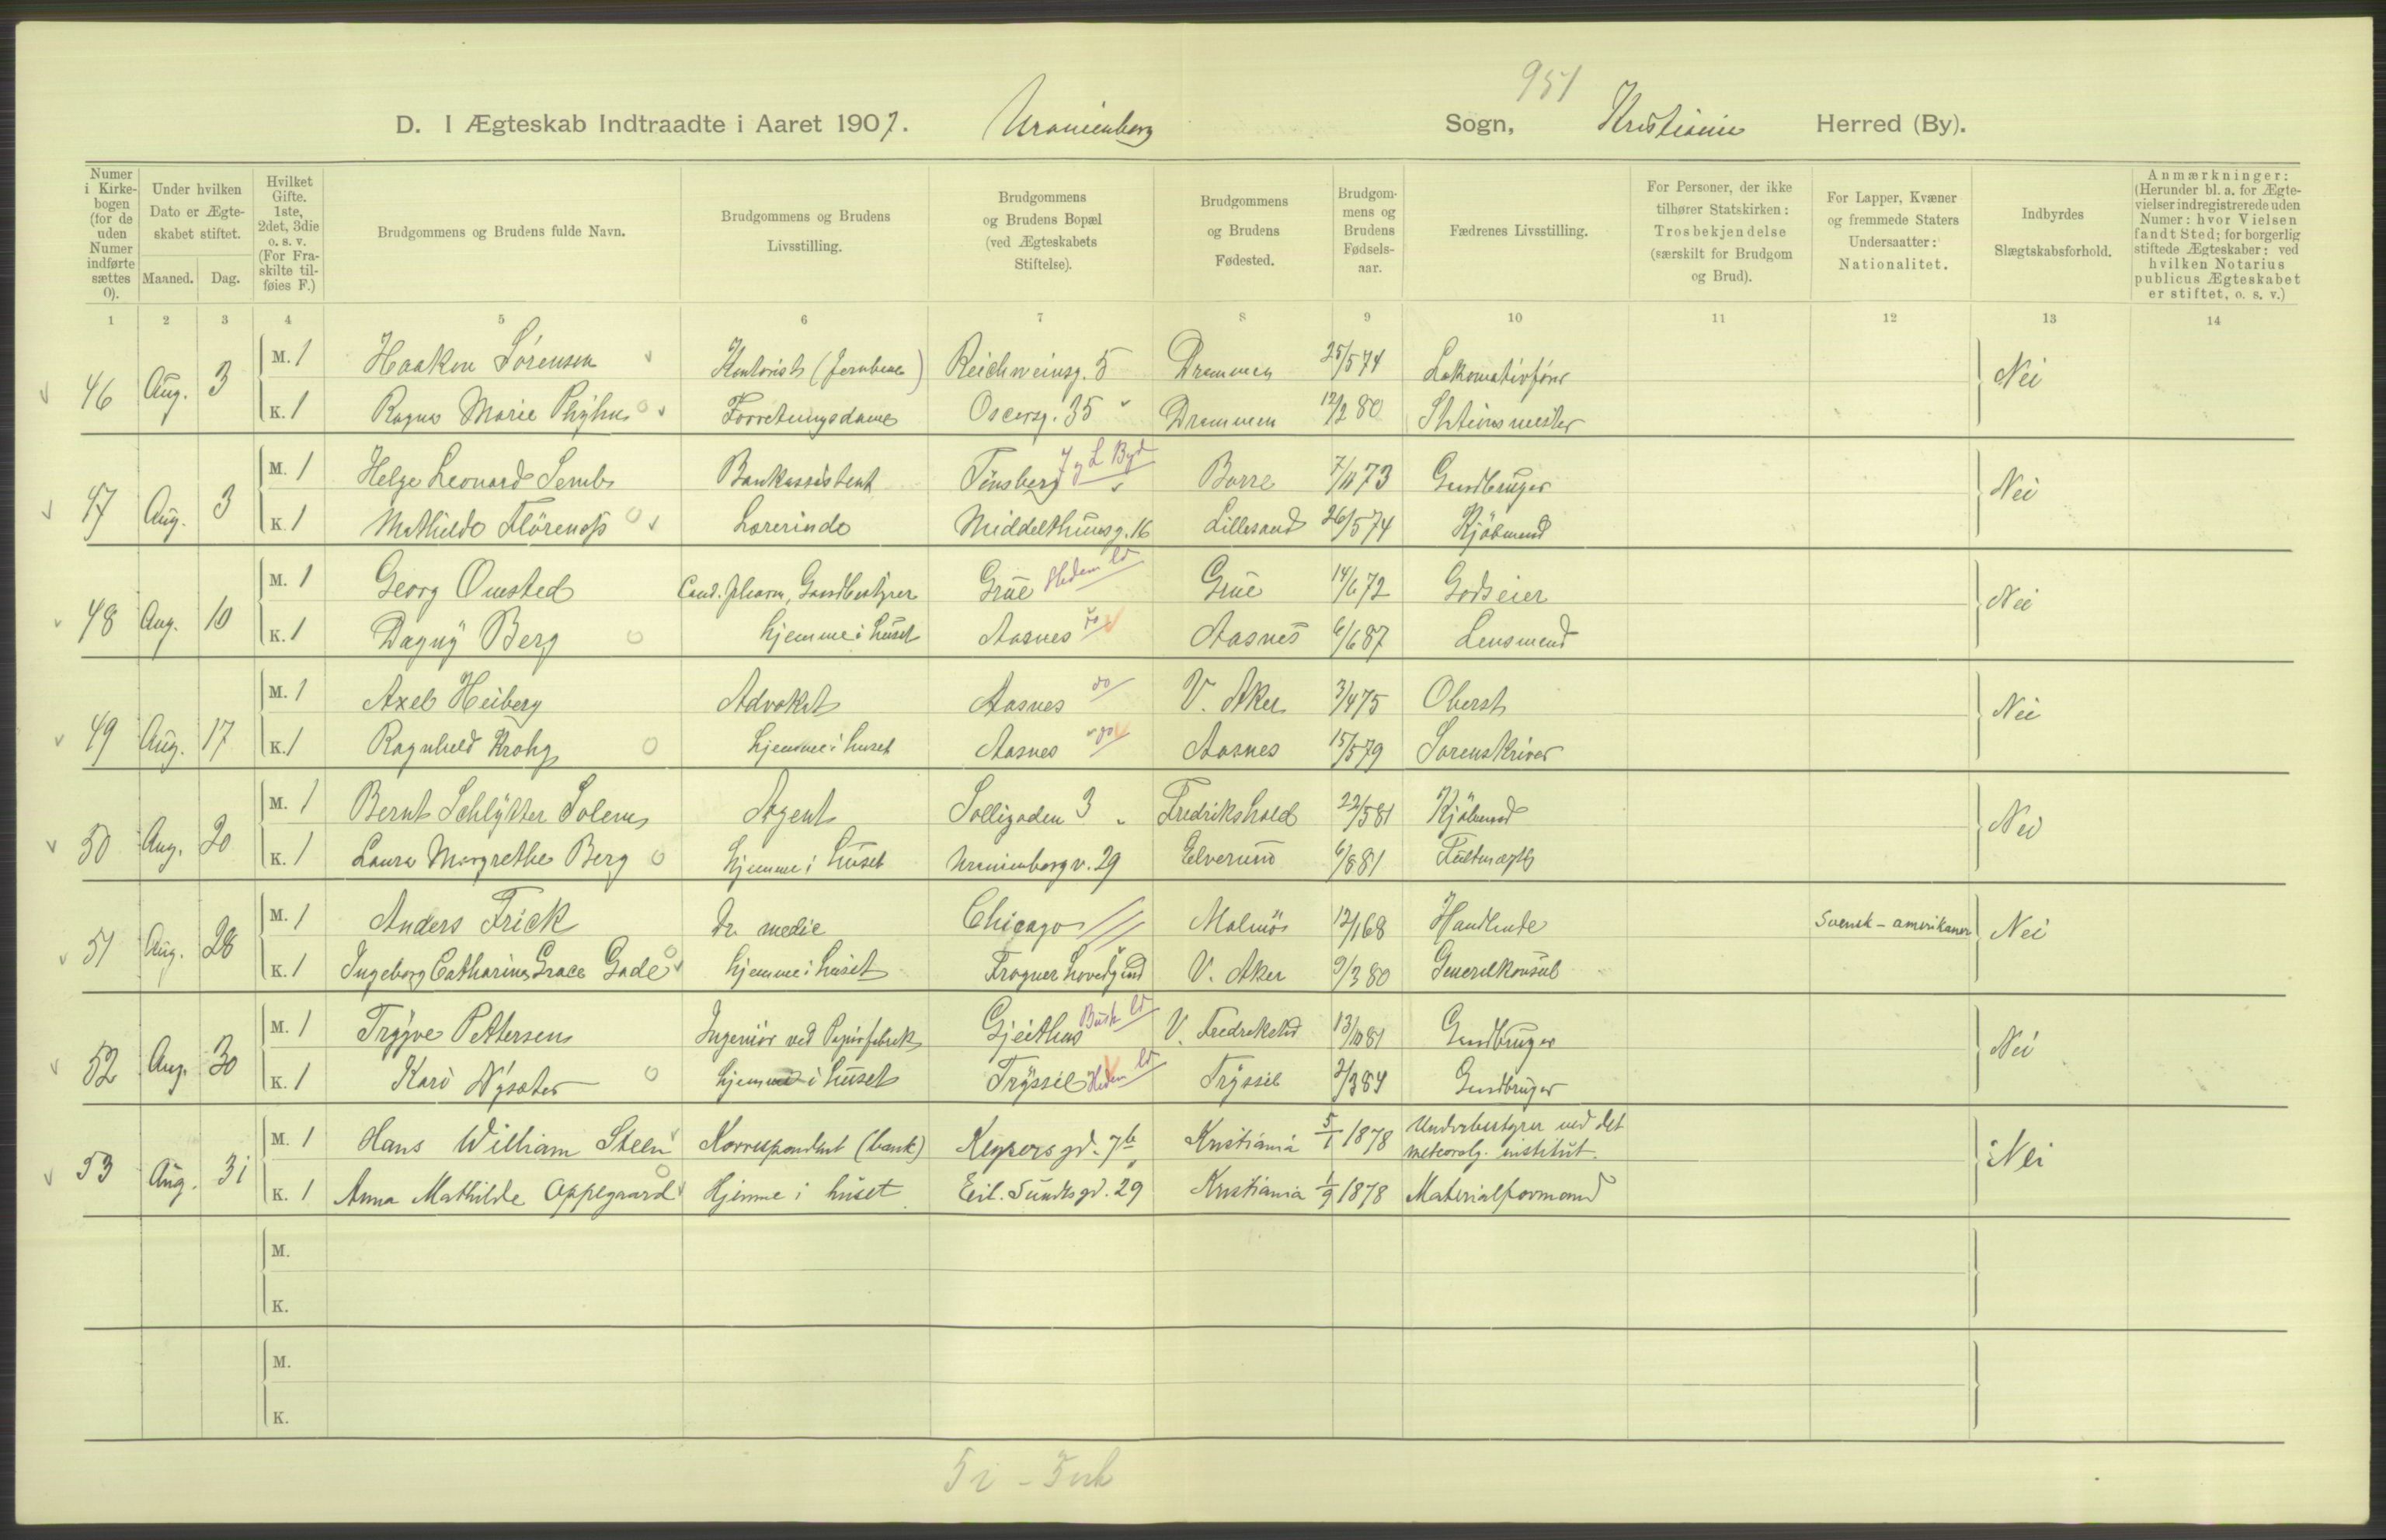 951
D. I Ægteskab Indtraadte i Aaret 1907. Uranienborg Sogn, Kristiania Herred (By).
Numer i Kirkebogen (for de uden Numer indførte sættes 0).
Under hvilken Dato er Ægteskabet stiftet.
Maaned. Dag.
Hvilket Gifte. 1ste, 2det, 3die o. s. v. (For Fraskilte tilføies F.)
Brudgommens og Brudens fulde Navn.
Brudgommens og Brudens Livsstilling.
Brudgommens og Brudens Bopæl (ved Ægteskabets Stiftelse).
Brudgommens og Brudens Fødested.
Brudgommens og Brudens Fødselsaar.
Fædrenes Livsstilling.
For Personer, der ikke tilhører Statskirken: Trosbekjendelse (særskilt for Brudgom og Brud).
For Lapper, Kvæner og fremmede Staters Undersaatter: Nationalitet.
Indbyrdes Slægtskabsforhold.
Anmærkninger: (Herunder bl. a. for Ægtevielser indregistrerede uden Numer: hvor Vielsen fandt Sted; for borgerlig stiftede Ægteskaber: ved hvilken Notarius publicus Ægteskabet er stiftet, o. s. v.)
1 2 3 4 5 6 7 8 9 10 11 12 13 14
46 Aug. 3 M. 1 Haakon Sørensen Kontorist (Jernbane) Reichweinsg. 5 Drammen 25/5 74 Lokomotivfører Nei
K. 1 Ragna Marie Thyhn Forretningsdame Oscarsg. 35 Drammen 12/2 80 Stationsmester
47 Aug. 3 M. 1 Helge Leonard Semb Bankassistent Tønsberg Borre 7/11 73 Gaardbruger Nei
K. 1 Mathilde Florenæs Lærerinde Middelthunsg. 16 Lillesand 26/5 74 Kjøbmand
48 Aug. 10 M. 1 Georg Omsted Cand. Pharm, Gaardbestyrer Grue Hedem ld Grue 14/6 72 Godseier Nei
K. 1 Dagny Berg hjemme i huset Aasnes do Aasnes 6/6 87 Lensmand
49 Aug. 17 M. 1 Axel Heiberg Advokat Aasnes do V. Aker 3/4 75 Oberst Nei
K. 1 Ragnhild Krohg hjemme i huset Aasnes do Aasnes 15/5 79 Sorenskriver
50 Aug. 20 M. 1 Bernt Schlytter Solem Agent Solligaden 3 Fredrikshald 22/5 81 Kjøbmand Nei
K. 1 Laura Margrethe Berg hjemme i huset Uranienborgv. 29 Elverum 6/8 81 Fuldmægtig
51 Aug. 28 M. 1 Anders Frick Dr. medic Chicago Malmö 12/1 68 Handlende Svensk-amerikaner Nei
K. 1 Ingeborg Catharina Grace Gade hjemme i huset Frogner hovedgaard V. Aker 9/3 80 Generalkonsul
52 Aug. 30 M. 1 Trygve Pettersen Ingeniør ved Papirfabrik Gjeithus Busk ld V. Fredrikstad 13/10 81 Gaardbruger Nei
K. 1 Kari Nysæter hjemme i huset Trysil Hedem ld Trysil 2/3 84 Gaardbruger
53 Aug. 31 M. 1 Hans William Steen Korrespondent (bank) Keysers gd. 7b Kristiania 5/1 1878 Underbestyrer ved det
meteorolg. institut. Nei
K. 1 Anna Mathilde Oppegaard Hjemme i huset Eil. Sundts gd. 29 Kristiania 1/9 1878 Materialformand
M.
K.
M.
K.